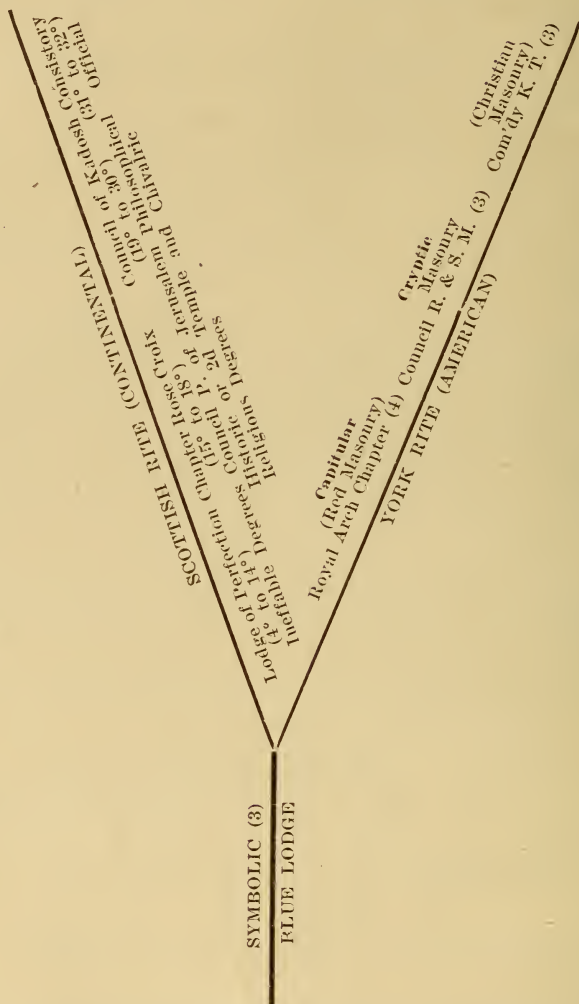 SYMBOLIC (3)
BLUE LODGE
SCOTTISH RITE (CONTINENTAL)
Lodge of Perfection
(4° to 14°)
Ineffable Degrees
Chapter Rose Croix
(15° to 18°)
Council P. of Jerusalem
Council or 2d Temple
Historic and
Religious Degrees
Council of Kadosh
(19° to 30°)
Philosophical
and Chivalric
Consistory
(31° to 32°)
Official
Capitular
(Red Masonry)
Royal Arch Chapter (4)
Cryptic
Masonry
Council R. & S. M. (3)
(Christian
Masonry)
Com'dy K. T. (3)
YORK RITE (AMERICAN)